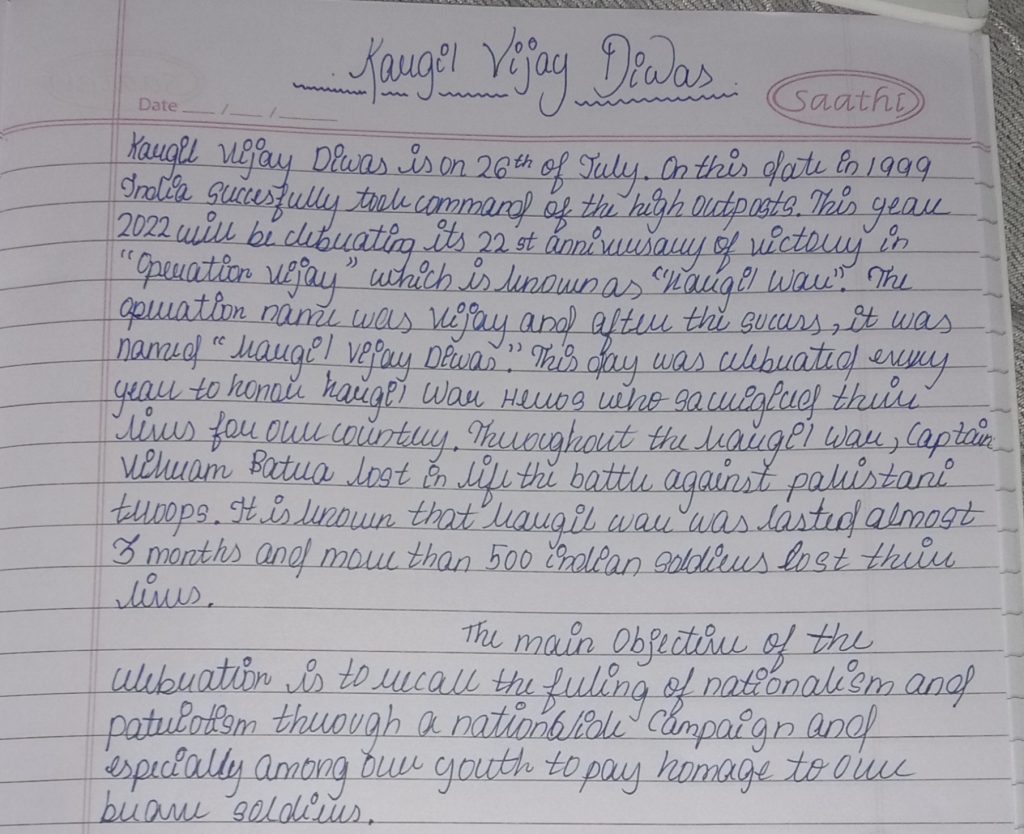 Kargil Vijay Diwas
Saathi
Date __/__/____
Kargil Vijay Diwas is on 26th of July. On this date in 1999
India succesfully took command of the high outposts. This year
2022 will be clebrating its 22 st anniversary of victory in
"Operation Vijay" which is known as "Kargil War". The
operation name was Vijay and after the sucess, it was
named "Kargil Vijay Diwas." This day was celebrated every
year to honor kargil War Heros who sacrificed their
lives for our country. Throughout the Kargil War, Captain
Vikram Batra lost in life the battle against pakistani
troops. It is known that Kargil war was lasted almost
3 months and more than 500 indian soldiers lost their
lives.
The main Objective of the
celebration is to recall the feeling of nationalism and
patriotism through a nationwide Campaign and
especially among our youth to pay homage to our
brave soldiers.